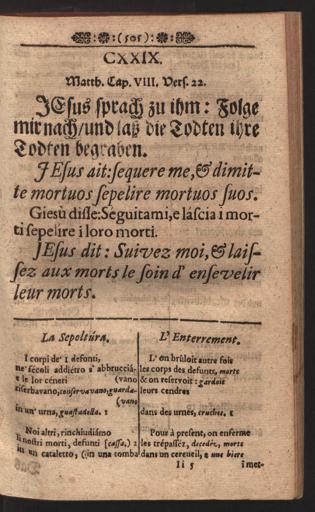 (505)
CXXIX.
Matth. Cap. VIII. Vers. 22.
JEsus sprach zu ihm: Folge
mir nach/und laß die Todten ihre
Todten begraben.
JEsus ait: sequere me, & dimit-
te mortuos sepelire mortuos suos.
Giesù disse: Seguitami, e lascia i mor-
ti sepelire i loro morti.
JEsus dit: Suivez moi, & lais-
sez aux morts le soin d' ensevelir
leur morts.
La Sepoltúra.
I corpi de' i defonti,
ne' sécoli addiétro s' abbrucciá-
e le lor céneri (vano
riserbavano, conservavano, guarda-
(vano
in un' urna, guastadello. 1
Noi altri, rinchiudiámo
li nostri morti, defunti [cassa,) 2
in un cataletto, (in una tomba
L' Enterrement.
L' on brûloit autre fois
les corps des defunts, morts
& on reservoit: gardoit
leurs cendres
dans des urnés, cruches, 1
Pour à present, on enferme
les trépassez, decedéz, morts
dans un cerceuil, e une biere
Ii 5
imet-